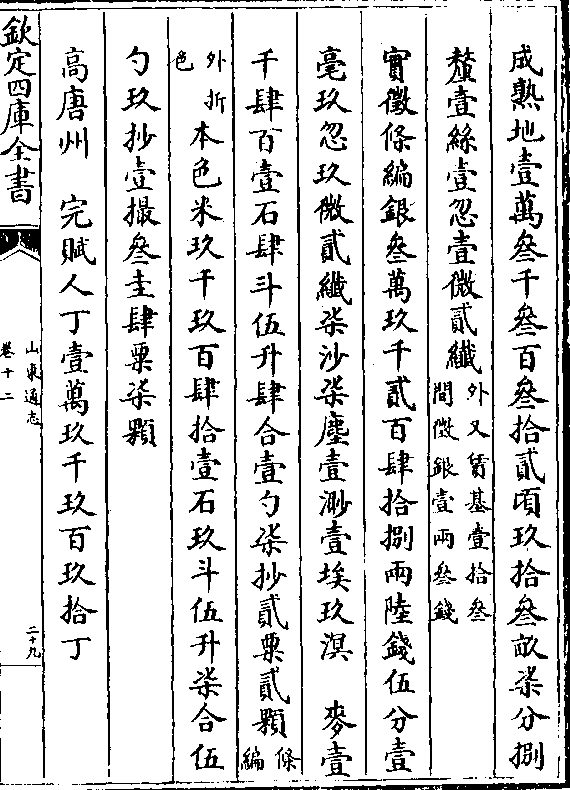 成熟地壹萬叁千叁百叁拾貳頃玖拾叁畝柒分捌
釐壹絲壹忽壹微貳纖外又賃基壹拾叁
間徵銀壹兩叁錢
實徵條編銀叁萬玖千貳百肆拾捌兩陸錢伍分壹
毫玖忽玖微貳纖柒沙柒塵壹渺壹埃玖溟 麥壹
千肆百壹石肆斗伍升肆合壹勺柒抄貳粟貳顆條
編
外折
色本色米玖千玖百肆拾壹石玖斗伍升柒合伍
勺玖抄壹撮叁圭肆粟柒顆
高唐州 完賦人丁壹萬玖千玖百玖拾丁
欽定四庫全書
山東通志
卷十二
二十九